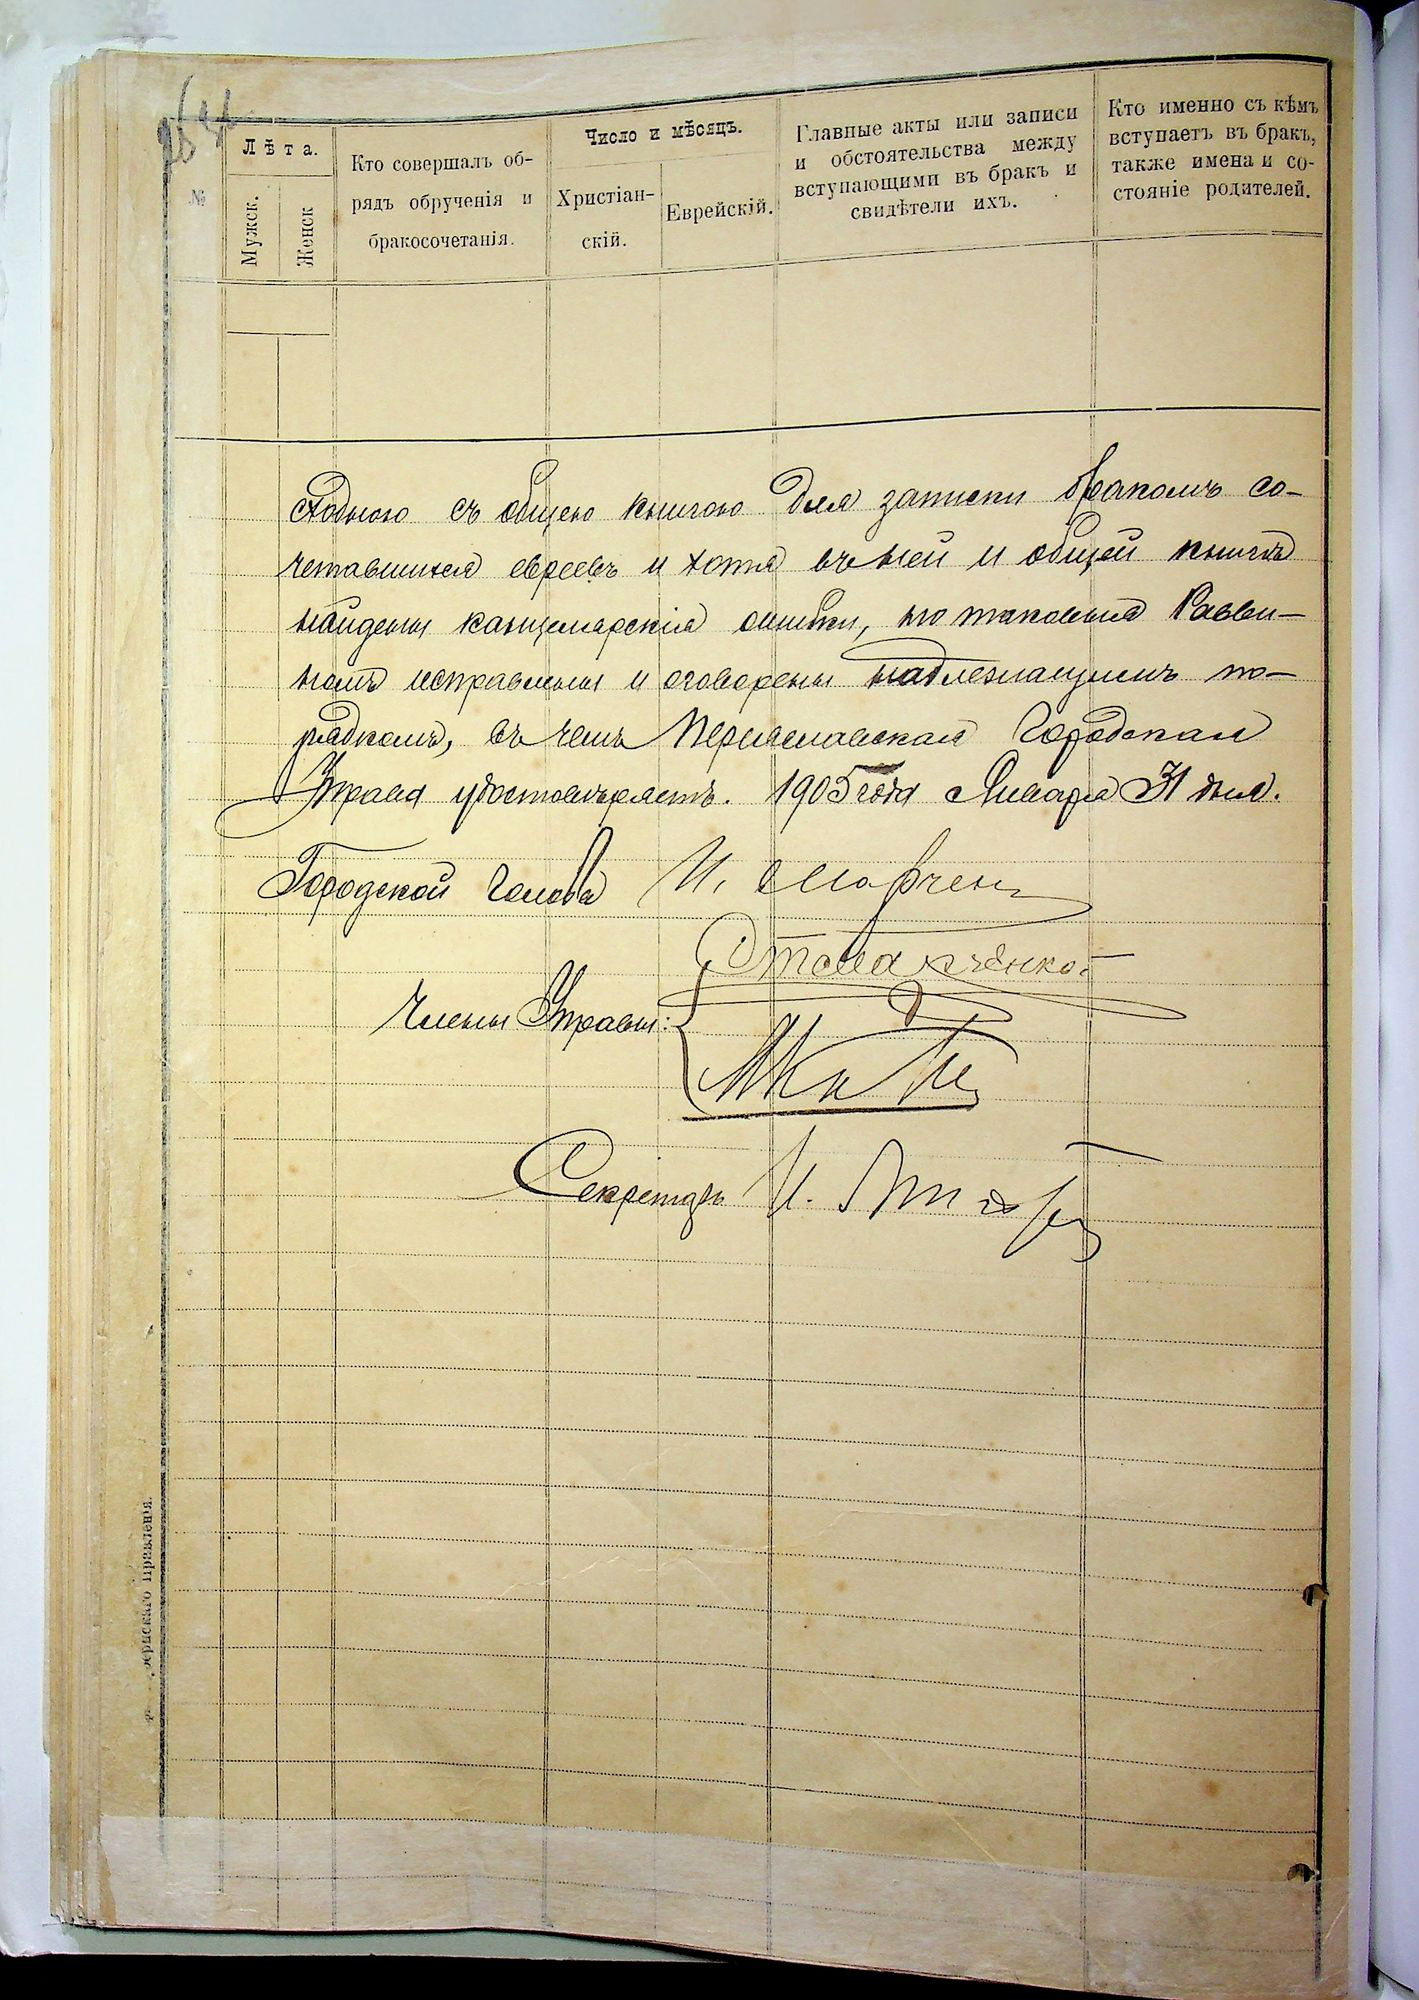 №
Лѣта.
Мужск.
Женск
Кто совершалъ об-
рядъ обрученія и
бракосочетанія.
Число и мѣсяцъ.
Христіан-
скій.
Еврейскій.
Главные акты или записи
и обстоятельства между
вступающими въ бракъ и
свидѣтели ихъ.
Кто именно съ кѣмъ
вступаетъ въ бракъ,
также имена и со-
стояніе родителей.
сходною съ общею книгою для записки бракомъ со-
четавшихся евреевъ и хотя въ ней и общей книгѣ
найдены канцелярскія ошибки, но таковыя Равви-
номъ исправлены и оговорены надлежащимъ по-
рядкомъ, въ чемъ Переяславская Городская
Управа удостовѣряетъ. 1905 года Января 31 дня.
Городской Голова
Члены Управы:
Секретарь И.
правленія.